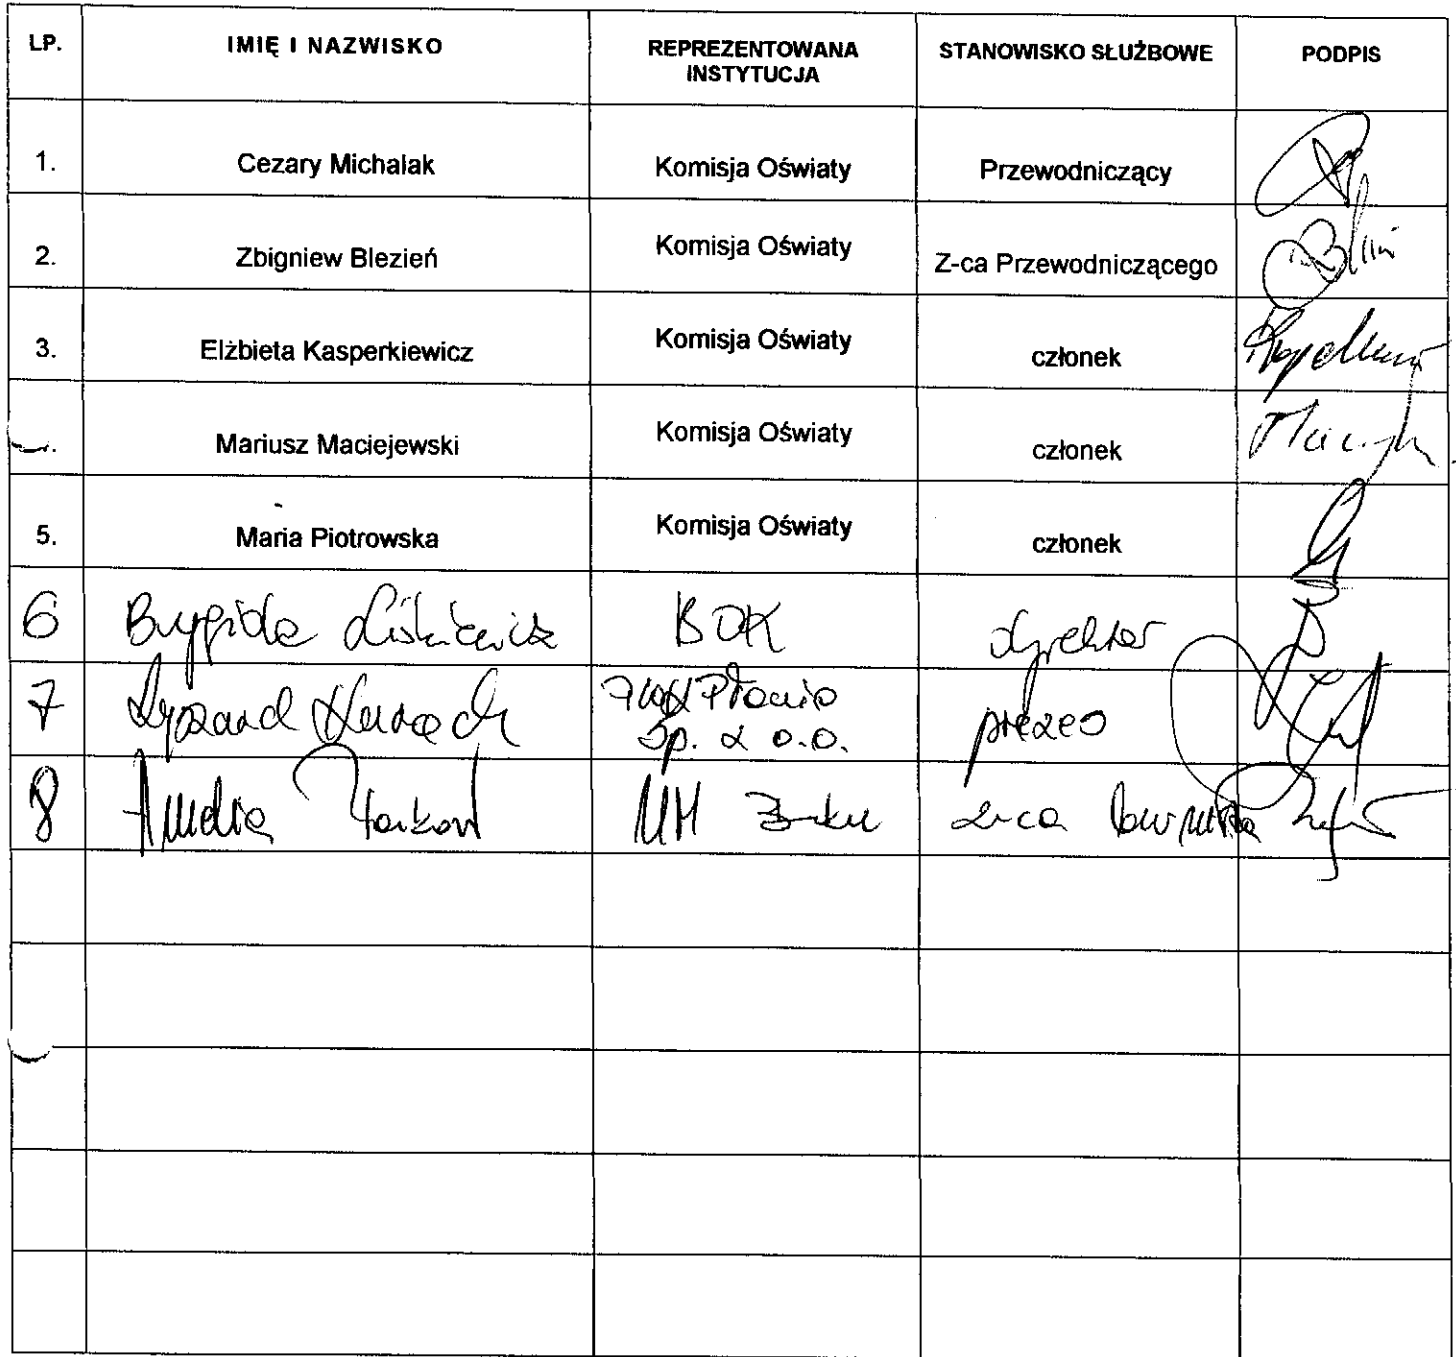 LP. IMIĘ I NAZWISKO REPREZENTOWANA INSTYTUCJA STANOWISKO SŁUŻBOWE PODPIS
1. Cezary Michalak Komisja Oświaty Przewodniczący
2. Zbigniew Blezień Komisja Oświaty Z-ca Przewodniczącego
3. Elżbieta Kasperkiewicz Komisja Oświaty członek
Mariusz Maciejewski Komisja Oświaty członek
5. Maria Piotrowska Komisja Oświaty członek
6 Brygida BOK dyrektor
7 Ryszard Sp. z o.o. prezes
8 UM